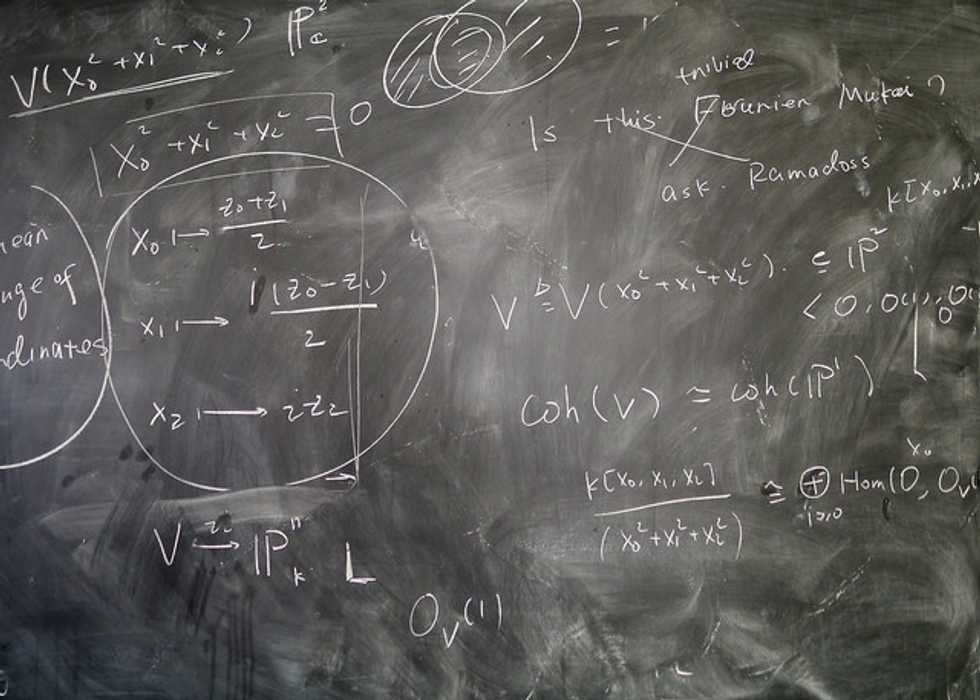 V(x₀² + x₁² + x₂²) ℙ²_ℂ
= 1
x₀² + x₁² + x₂² = 0
trivial
Is this Fourier Mukai ?
ask. Ramadoss
ean
nge of
dinates
x₀ ↦ (z₀+z₁)/2
x₁ ↦ i(z₀-z₁)/2
x₂ ↦ z₂
k[x₀, x₁, x
V ≅ V(x₀² + x₁² + x₂²). ⊆ ℙ²
< O, O(1), O(
coh(V) ≅ coh(ℙ¹)
x₀
k[x₀, x₁, x₂] / (x₀² + x₁² + x₂²) ≅ ⊕ i≥0 Hom(O, O_V
V → ℙⁿ_k L
O_V(1)